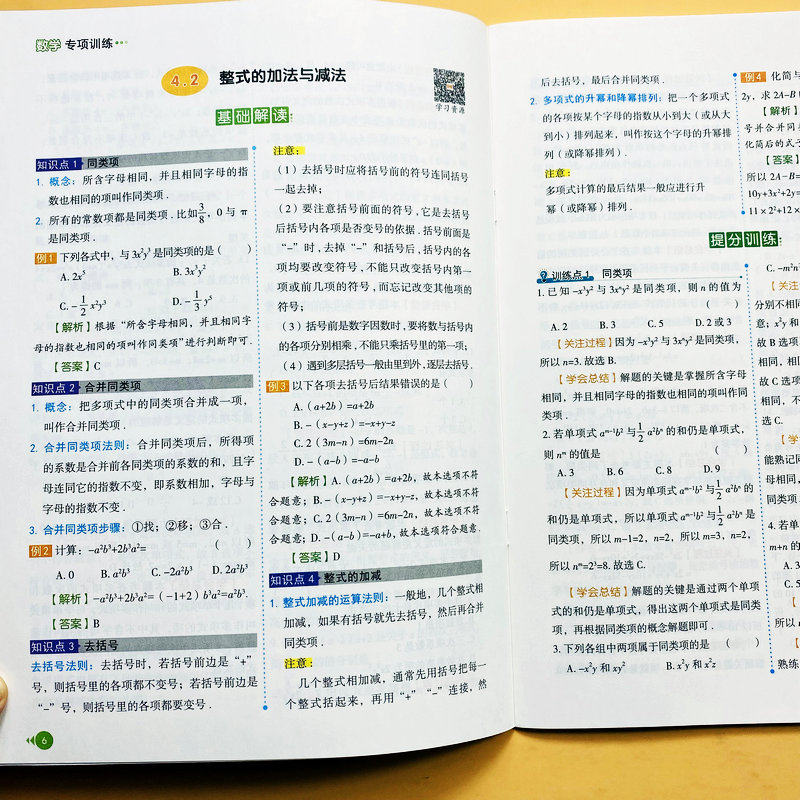 数学 专项训练
4.2 整式的加法与减法
学习资源
基础解读
知识点 1 同类项
1. 概念：所含字母相同，并且相同字母的指
数也相同的项叫作同类项.
2. 所有的常数项都是同类项. 比如3/8，0 与 π
是同类项.
例1 下列各式中，与 3x²y³ 是同类项的是（ ）
A. 2x⁵ B. 3x³y²
C. −1/2 x²y³ D. −1/3 y⁵
【解析】根据“所含字母相同，并且相同字
母的指数也相同的项叫作同类项”进行判断即可.
【答案】C
知识点 2 合并同类项
1. 概念：把多项式中的同类项合并成一项，
叫作合并同类项.
2. 合并同类项法则：合并同类项后，所得项
的系数是合并前各同类项的系数的和，且字
母连同它的指数不变，即系数相加，字母与
字母的指数不变.
3. 合并同类项步骤：①找；②移；③合.
例2 计算：−a²b³+2b³a²= （ ）
A. 0 B. a²b³ C. −2a²b³ D. 2a²b³
【解析】−a²b³+2b³a²=（−1+2）b³a²=a²b³.
【答案】B
知识点 3 去括号
去括号法则：去括号时，若括号前边是“+”
号，则括号里的各项都不变号；若括号前边是
“−”号，则括号里的各项都要变号.
6
注意：
（1）去括号时应将括号前的符号连同括号
一起去掉；
（2）要注意括号前面的符号，它是去括号
后括号内各项是否变号的依据. 括号前面是
“−”时，去掉“−”和括号后，括号内的各
项均要改变符号，不能只改变括号内第一
项或前几项的符号，而忘记改变其他项的
符号；
（3）括号前是数字因数时，要将数与括号内
的各项分别相乘，不能只乘括号里的第一项；
（4）遇到多层括号一般由里到外，逐层去括号.
例3 以下各项去括号后结果错误的是（ ）
A.（a+2b）=a+2b
B. −（x−y+z）=−x+y−z
C. 2（3m−n）=6m−2n
D. −（a−b）=−a−b
【解析】A.（a+2b）=a+2b，故本选项不符
合题意；B. −（x−y+z）=−x+y−z，故本选项不符
合题意；C. 2（3m−n）=6m−2n，故本选项不符
合题意；D. −（a−b）=−a+b，故本选项符合题意.
【答案】D
知识点 4 整式的加减
1. 整式加减的运算法则：一般地，几个整式相
加减，如果有括号就先去括号，然后再合并
同类项.
注意：
几个整式相加减，通常先用括号把每一
个整式括起来，再用“+”“−”连接，然
后去括号，最后合并同类项.
2. 多项式的升幂和降幂排列：把一个多项式
的各项按某个字母的指数从小到大（或从大
到小）排列起来，叫作按这个字母的升幂排
列（或降幂排列）.
注意：
多项式计算的最后结果一般应进行升
幂（或降幂）排列.
提分训练
训练点 1 同类项
1. 已知 −x³y² 与 3xⁿy² 是同类项，则 n 的值为
（ ）
A. 2 B. 3 C. 5 D. 2 或 3
【关注过程】因为 −x³y² 与 3xⁿy² 是同类项，
所以 n=3. 故选 B.
【学会总结】解题的关键是掌握所含字母
相同，并且相同字母的指数也相同的项叫作同
类项.
2. 若单项式 aᵐ⁻¹b² 与1/2 a²bⁿ 的和仍是单项式，
则 nᵐ 的值是 （ ）
A. 3 B. 6 C. 8 D. 9
【关注过程】因为单项式 aᵐ⁻¹b² 与1/2 a²bⁿ 的
和仍是单项式，所以单项式 aᵐ⁻¹b² 与1/2 a²bⁿ 是
同类项，所以 m−1=2，n=2，所以 m=3，n=2，
所以 nᵐ=2³=8. 故选 C.
【学会总结】解题的关键是通过两个单项
式的和仍是单项式，得出这两个单项式是同类
项，再根据同类项的概念解题即可.
3. 下列各组中两项属于同类项的是 （ ）
A. −x²y 和 xy² B. x²y 和 x²z
例4 化简与
2y，求 2A−B
【解析】
号并合并同
化简后的式子
【答案】
所以 2A−B=
10y+3x²+2y=
11×2²+12×
C. −m²n
【关注
分别不相同
意；x²y 和
故 B 选项
相同，相
故 C 选项
相同，不
选 C.
【学
能熟记同
母相同，
类项.
4. 若单
m+n 的
A. 3
【
所以 m
熟练